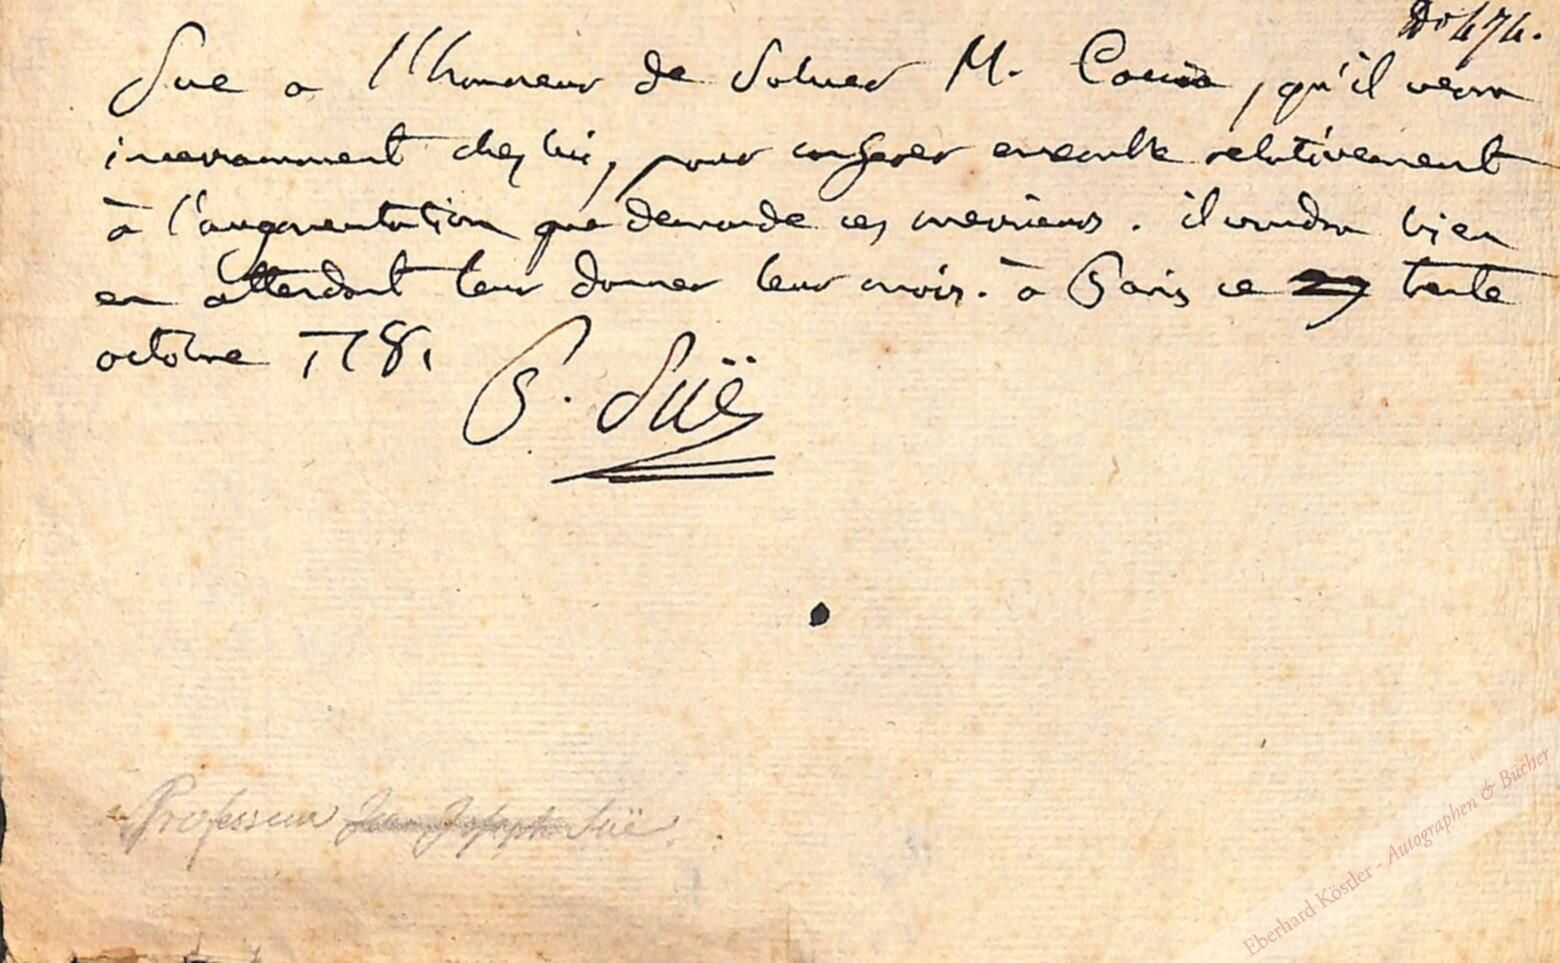 No 474.
Sue a l'honneur de saluer M. , qu'il verra
incessamment chez lui, pour conferer ensemble relativement
à l'augmentation que demande ces messieurs. il voudra bien
en attendant leur donner leur mois. à Paris ce trente
octobre 1781
P. Suë
Professeur Jean Joseph Süe.
Eberhard Köstler - Autographen & Bücher